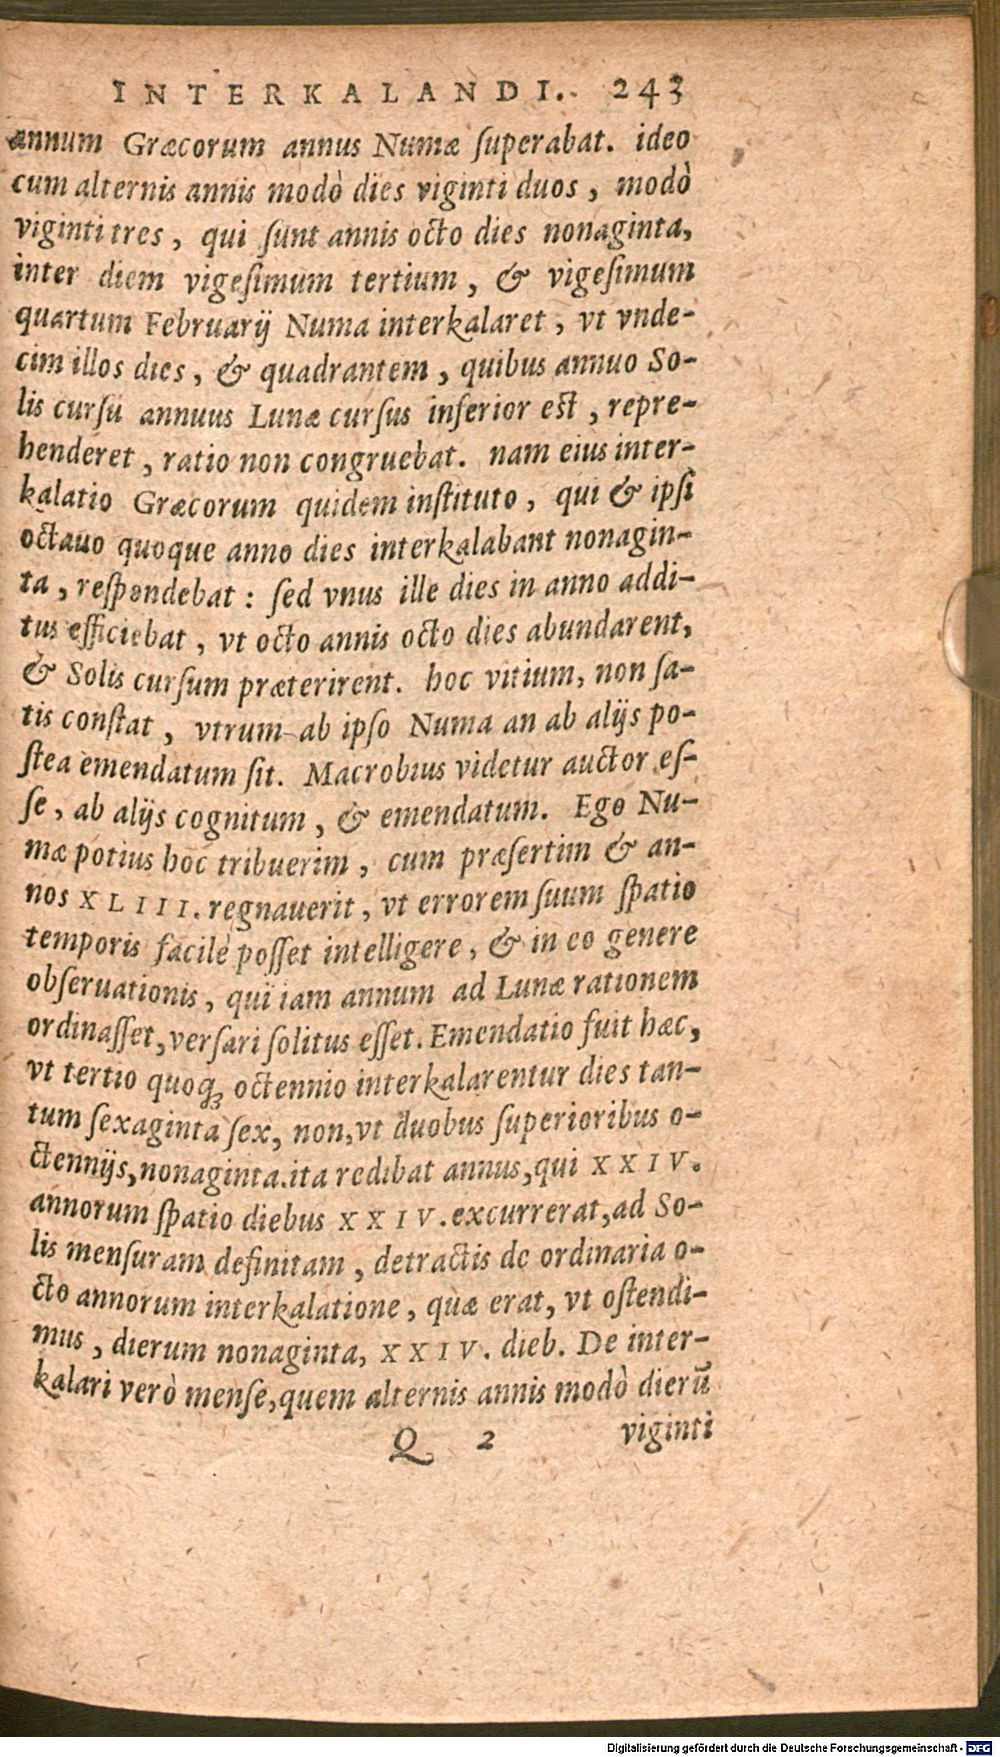 INTERKALANDI. 243
annum Græcorum annus Numæ ſuperabat. ideo
cum alternis annis modò dies viginti duos, modò
viginti tres, qui ſunt annis octo dies nonaginta,
inter diem vigeſimum tertium, & vigeſimum
quartum Februarij Numa interkalaret, vt vnde-
cim illos dies, & quadrantem, quibus annuo So-
lis curſu annuus Lunæ curſus inferior eſt, repre-
henderet, ratio non congruebat. nam eius inter-
kalatio Græcorum quidem inſtituto, qui & ipſi
octauo quoque anno dies interkalabant nonagin-
ta, reſpondebat: ſed vnus ille dies in anno addi-
tus efficiebat, vt octo annis octo dies abundarent,
& Solis curſum præterirent. hoc vitium, non ſa-
tis conſtat, vtrum ab ipſo Numa an ab alijs po-
ſtea emendatum ſit. Macrobius videtur auctor eſ-
ſe, ab alijs cognitum, & emendatum. Ego Nu-
mæ potius hoc tribuerim, cum præſertim & an-
nos XLIII. regnauerit, vt errorem ſuum ſpatio
temporis facilè poſſet intelligere, & in eo genere
obſeruationis, qui iam annum ad Lunæ rationem
ordinaſſet, verſari ſolitus eſſet. Emendatio fuit hæc,
vt tertio quoq; octennio interkalarentur dies tan-
tum ſexaginta ſex, non, vt duobus ſuperioribus o-
ctennijs, nonaginta. ita redibat annus, qui XXIV.
annorum ſpatio diebus XXIV. excurrerat, ad So-
lis menſuram definitam, detractis de ordinaria o-
cto annorum interkalatione, quæ erat, vt oſtendi-
mus, dierum nonaginta, XXIV. dieb. De inter-
kalari verò menſe, quem alternis annis modò dierū
Q 2 viginti
Digitalisierung gefördert durch die Deutsche Forschungsgemeinschaft - DFG